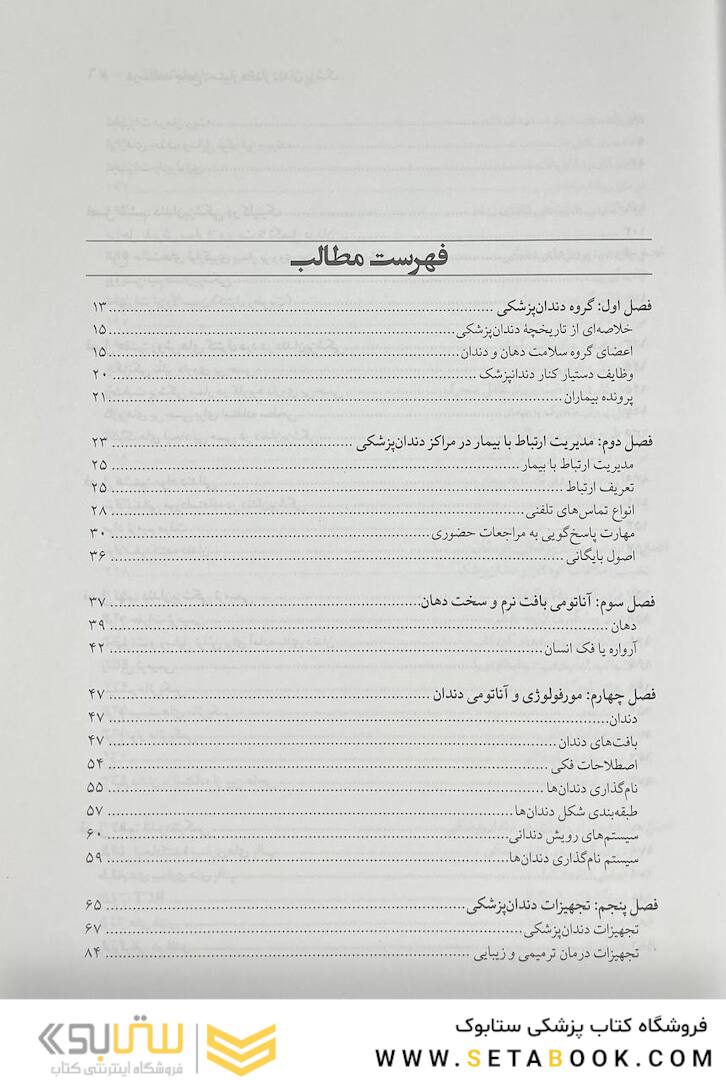 فهرست مطالب
فصل اول: گروه دندان‌پزشکی ........ ۱۳
خلاصه‌ای از تاریخچهٔ دندان‌پزشکی ........ ۱۵
اعضای گروه سلامت دهان و دندان ........ ۱۵
وظایف دستیار کنار دندانپزشک ........ ۲۰
پرونده بیماران ........ ۲۱
فصل دوم: مدیریت ارتباط با بیمار در مراکز دندان‌پزشکی ........ ۲۳
مدیریت ارتباط با بیمار ........ ۲۵
تعریف ارتباط ........ ۲۵
انواع تماس‌های تلفنی ........ ۲۸
مهارت پاسخ‌گویی به مراجعات حضوری ........ ۳۰
اصول بایگانی ........ ۳۶
فصل سوم: آناتومی بافت نرم و سخت دهان ........ ۳۷
دهان ........ ۳۹
آرواره یا فک انسان ........ ۴۲
فصل چهارم: مورفولوژی و آناتومی دندان ........ ۴۷
دندان ........ ۴۷
بافت‌های دندان ........ ۴۷
اصطلاحات فکی ........ ۵۴
نام‌گذاری دندان‌ها ........ ۵۵
طبقه‌بندی شکل دندان‌ها ........ ۵۷
سیستم‌های رویش دندانی ........ ۶۰
سیستم نام‌گذاری دندان‌ها ........ ۵۹
فصل پنجم: تجهیزات دندان‌پزشکی ........ ۶۵
تجهیزات دندان‌پزشکی ........ ۶۷
تجهیزات درمان ترمیمی و زیبایی ........ ۸۴
فروشگاه کتاب پزشکی ستابوک
WWW.SETABOOK.COM
ستابوک
فروشگاه اینترنتی کتاب